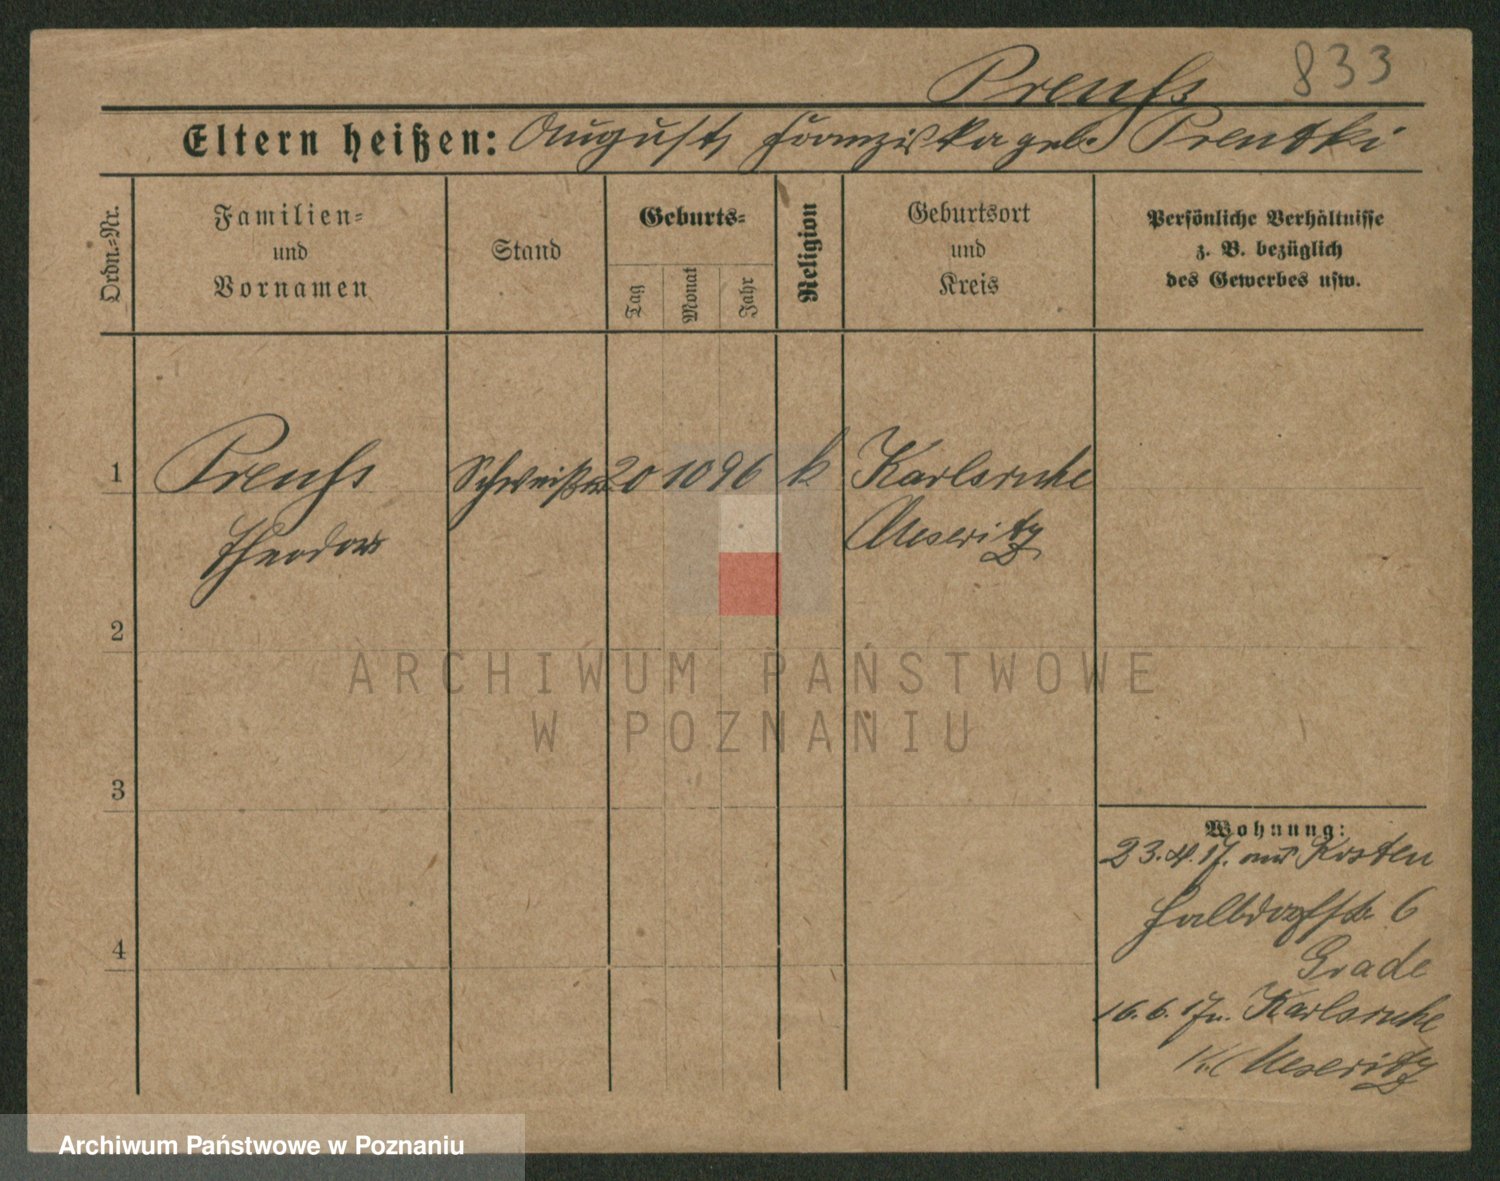 Preuſs 833
Eltern heißen: August, Franziska geb. Prentki
Ordn.-Nr.
Familien-
und
Vornamen
Stand
Geburts-
Tag
Monat
Jahr
Religion
Geburtsort
und
Kreis
Persönliche Verhältnisse
z. B. bezüglich
des Gewerbes usw.
1 Preuſs Schweißer 20 10 96 k Karlsruhe
Theodor Meseritz
2
3
4
Wohnung:
23.4.17. aus Kosten
6
Grade
16.6.17 n. Karlsruhe
K. Meseritz
ARCHIWUM PAŃSTWOWE
W POZNANIU
Archiwum Państwowe w Poznaniu